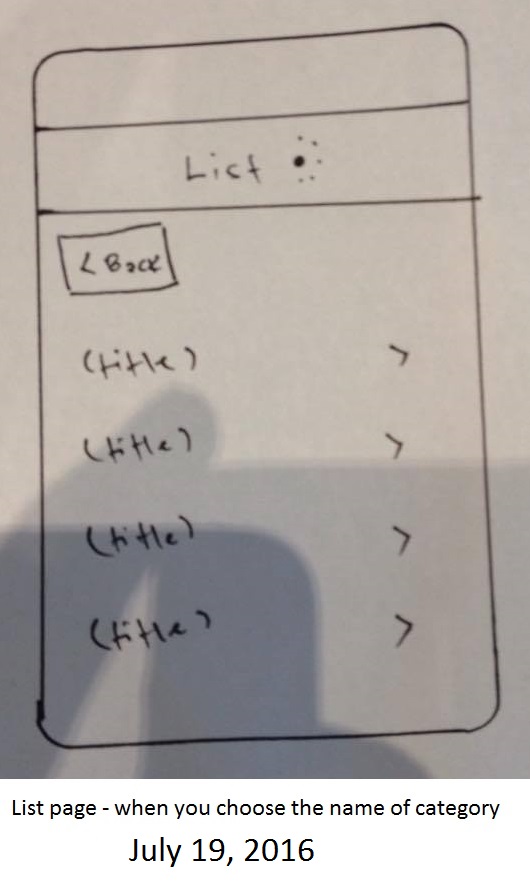 List
< Back
(title) >
(title) >
(title) >
(title) >
List page - when you choose the name of category
July 19, 2016